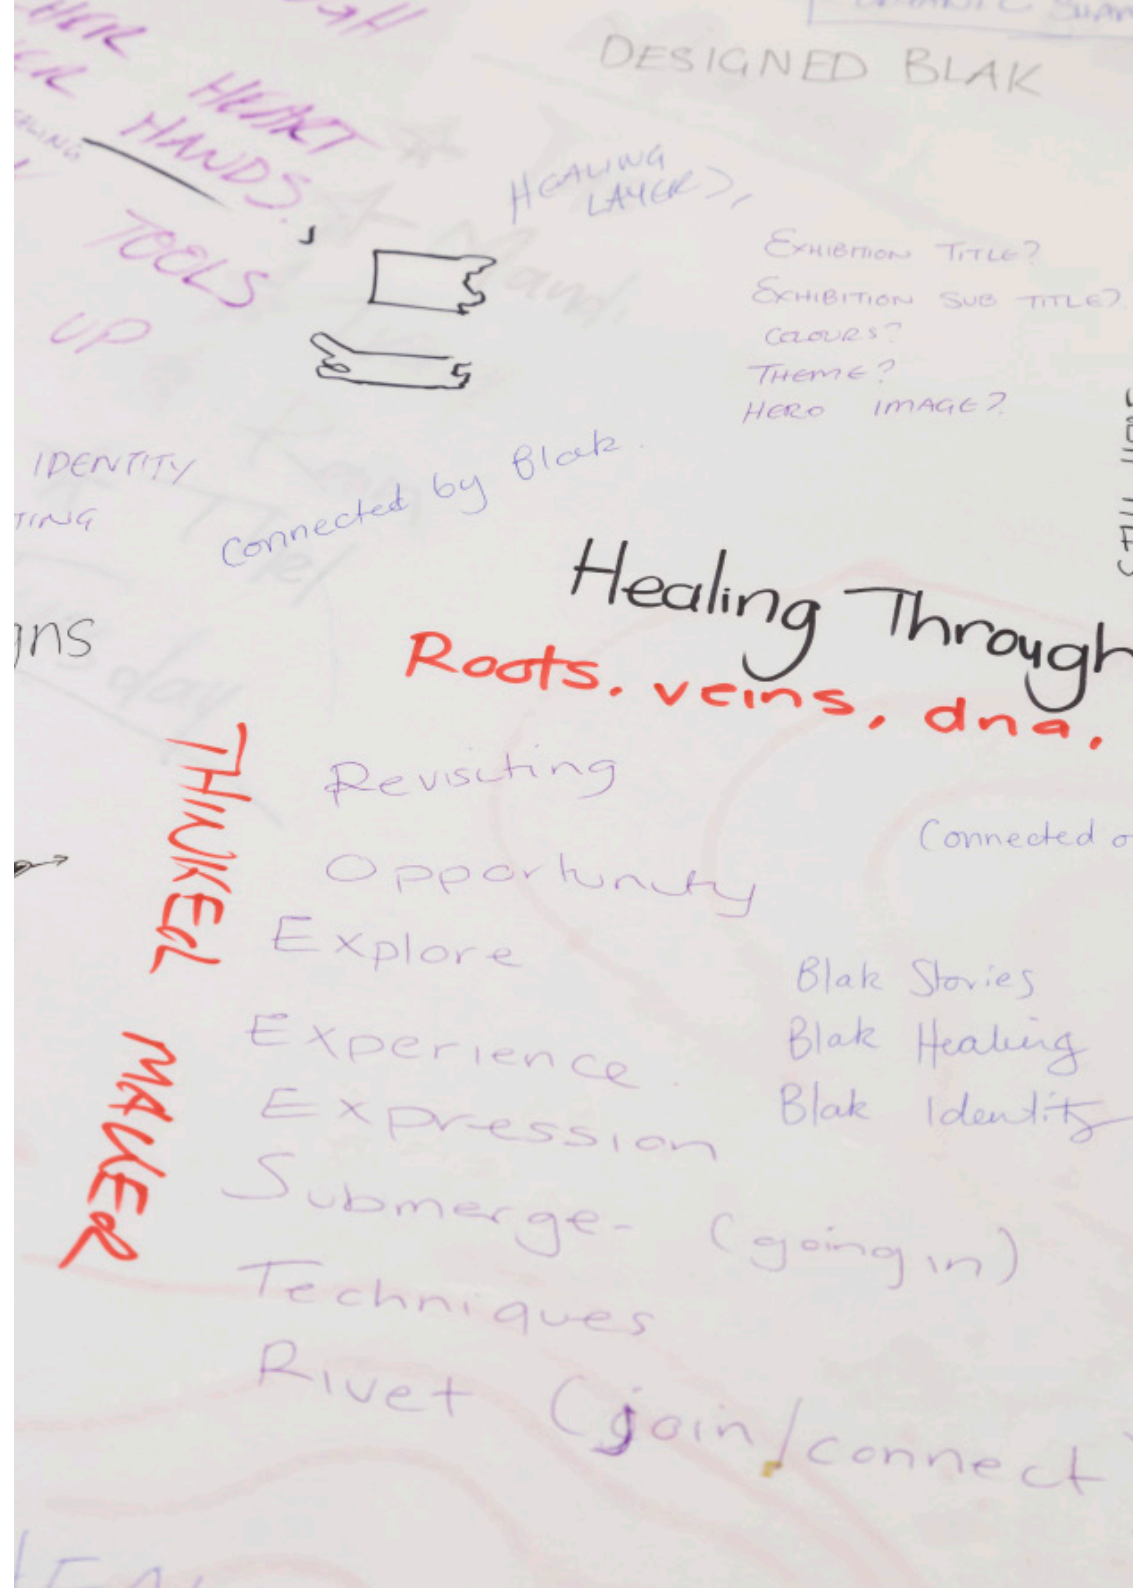 DESIGNED BLAK
HEART
HANDS.
TOOLS
UP
HEALING
LAYERS,
EXHIBITION TITLE?
EXHIBITION SUB TITLE?
COLOURS?
THEME?
HERO IMAGE?
IDENTITY
TING
Connected by Blak.
gns
Healing Through
Roots. veins, dna.
THINKER
MAKER
Revisiting
Opportunity
Explore
Experience.
Expression
Submerge- (going in)
Techniques
Rivet (join/connect
Connected o
Blak Stories
Blak Healing
Blak Identity